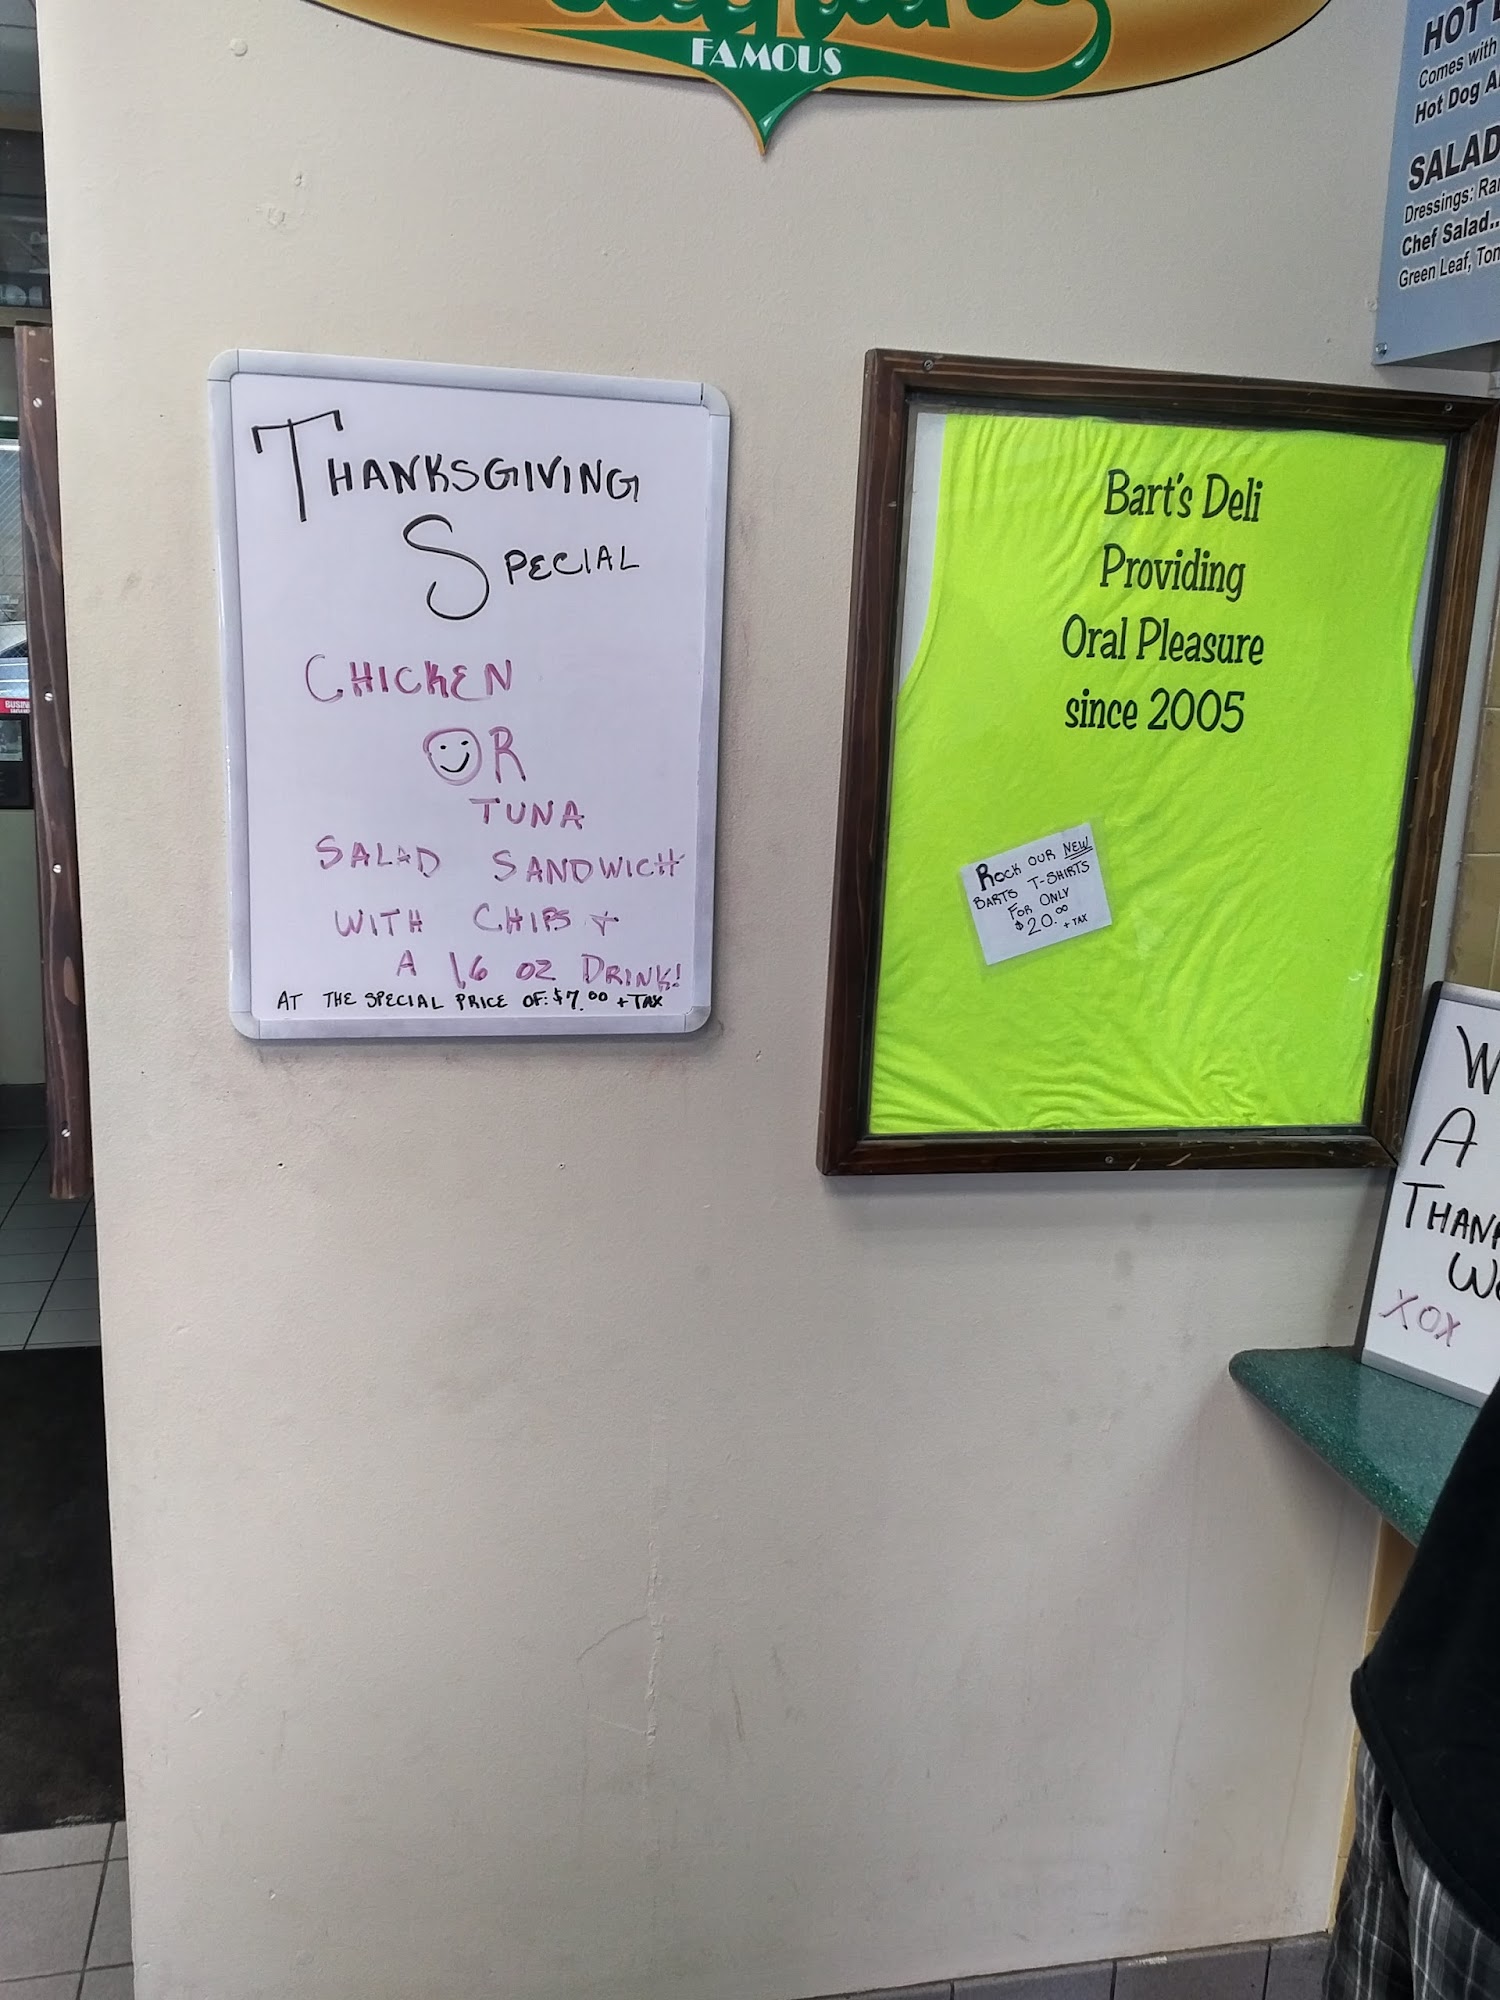 FAMOUS
HOT
Comes with
Hot Dog
SALAD
Dressings:
Chef Salad..
Green Leaf,
THANKSGIVING
SPECIAL
CHICKEN
OR
TUNA
SALAD SANDWICH
WITH CHIPS +
A 16 OZ DRINK!
AT THE SPECIAL PRICE OF: $7.00 + TAX
Bart's Deli
Providing
Oral Pleasure
since 2005
ROCK OUR NEW
BARTS T-SHIRTS
FOR ONLY
$20.00 + TAX
A
XOX